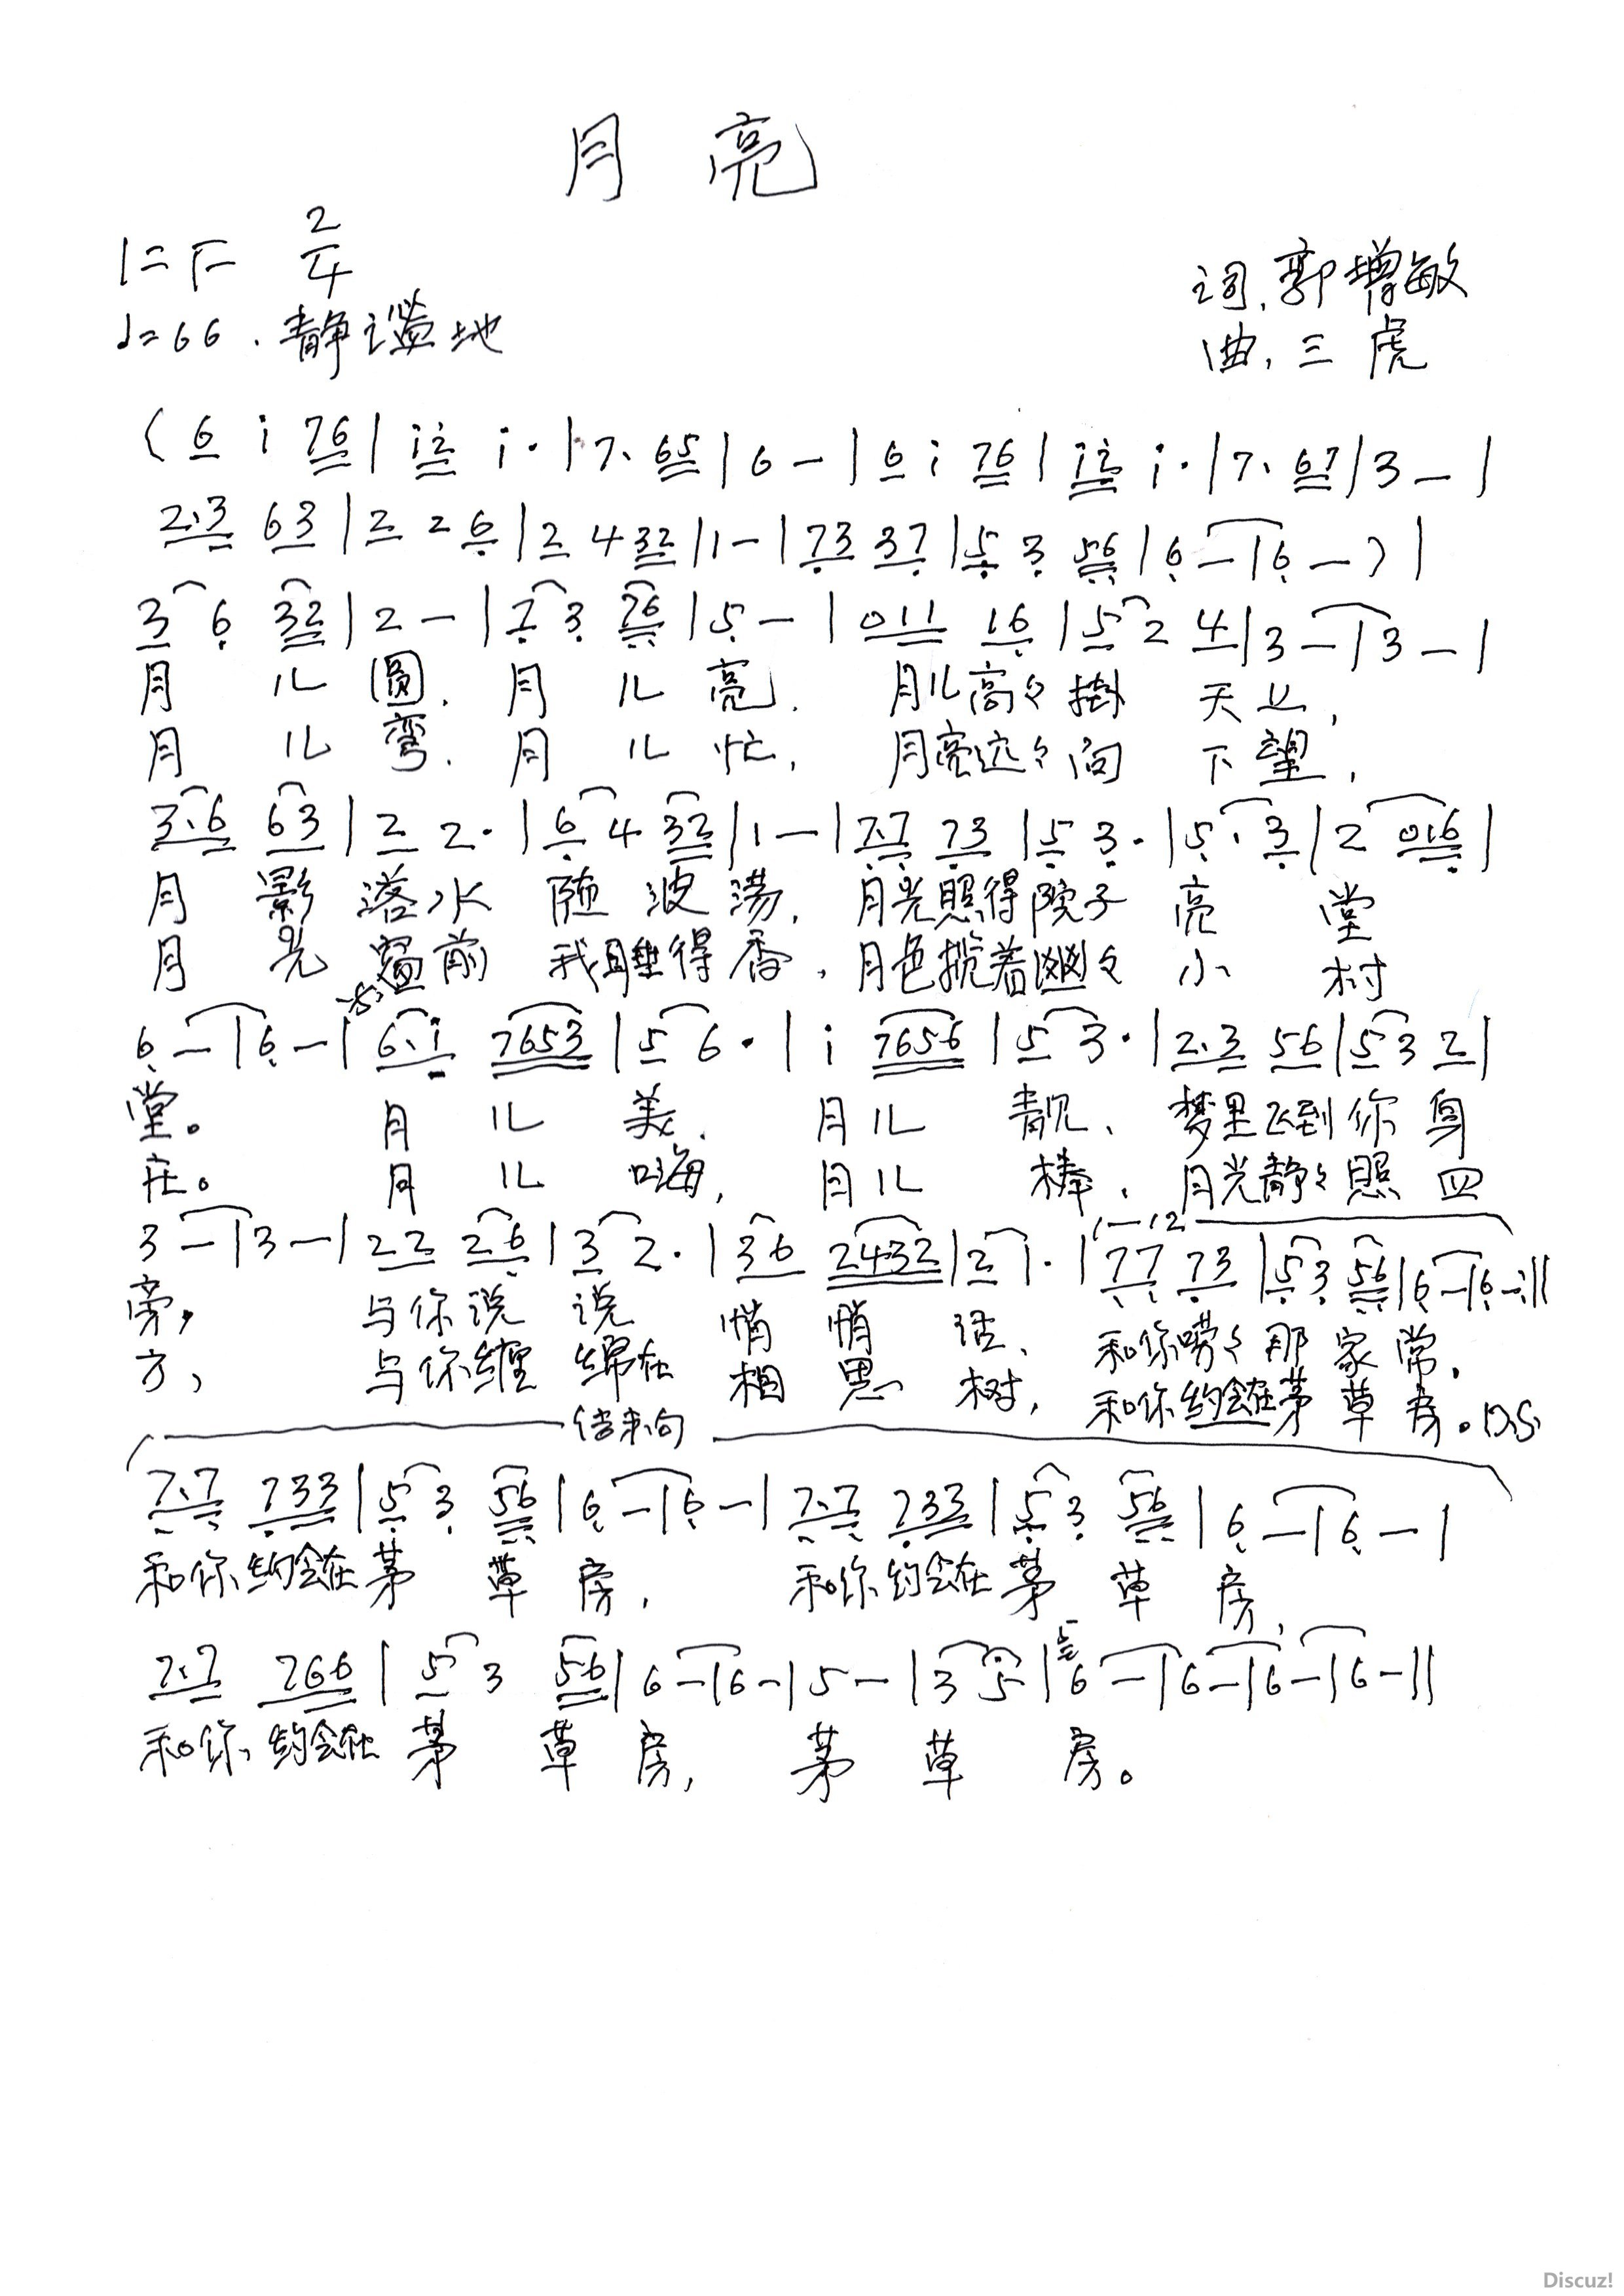 月亮
1=F 2/4
♩=66.静谧地
词,郭增敏
曲,三虎
(6 i 76|i2 i·|7· 65|6-|6 i 76|i2 i·|7· 67|3-|
2·3 63|2 2 6|2 4 32|1-|73 37|5 3 56|6-|6-)|
3 6 32|2-|7 3 76|5-|011 16|5 2 4|3-|3-|
月儿圆.月儿亮.月儿高々掛天上,
月儿弯.月儿忙,月亮远々向下望,
3·6 63|2 2·|6 4 32|1-|7·7 73|5 3·|5· 3|2 016|
月影落水随波荡,月光照得院子亮堂
月光窗前我睡得香,月色揽着幽幽々小村
6-|6-|6·i 7653|5 6·|i 7656|5 3·|2·3 56|5 3 2|
堂。月儿美.月儿靓、梦里飞到你身
庄。月儿嗨,月儿棒、月光静々照四
3-|3-|22 26|3 2·|36 2432|2 1·|77 73|5 3 56|6-|6-:||
旁,与你说说悄悄话、和你唠々那家常.
方,与你缠绵在相思树,和你约会在茅草房。D.S.
结束句
7·7 733|5 3 56|6-|6-|7·7 733|5 3 56|6-|6-|
和你约会在茅草房,和你约会在茅草房,
7·7 766|5 3 56|6-|6-|5-|3 5|6-|6-|6-|6-||
和你,约会在茅草房,茅草房。
Discuz!